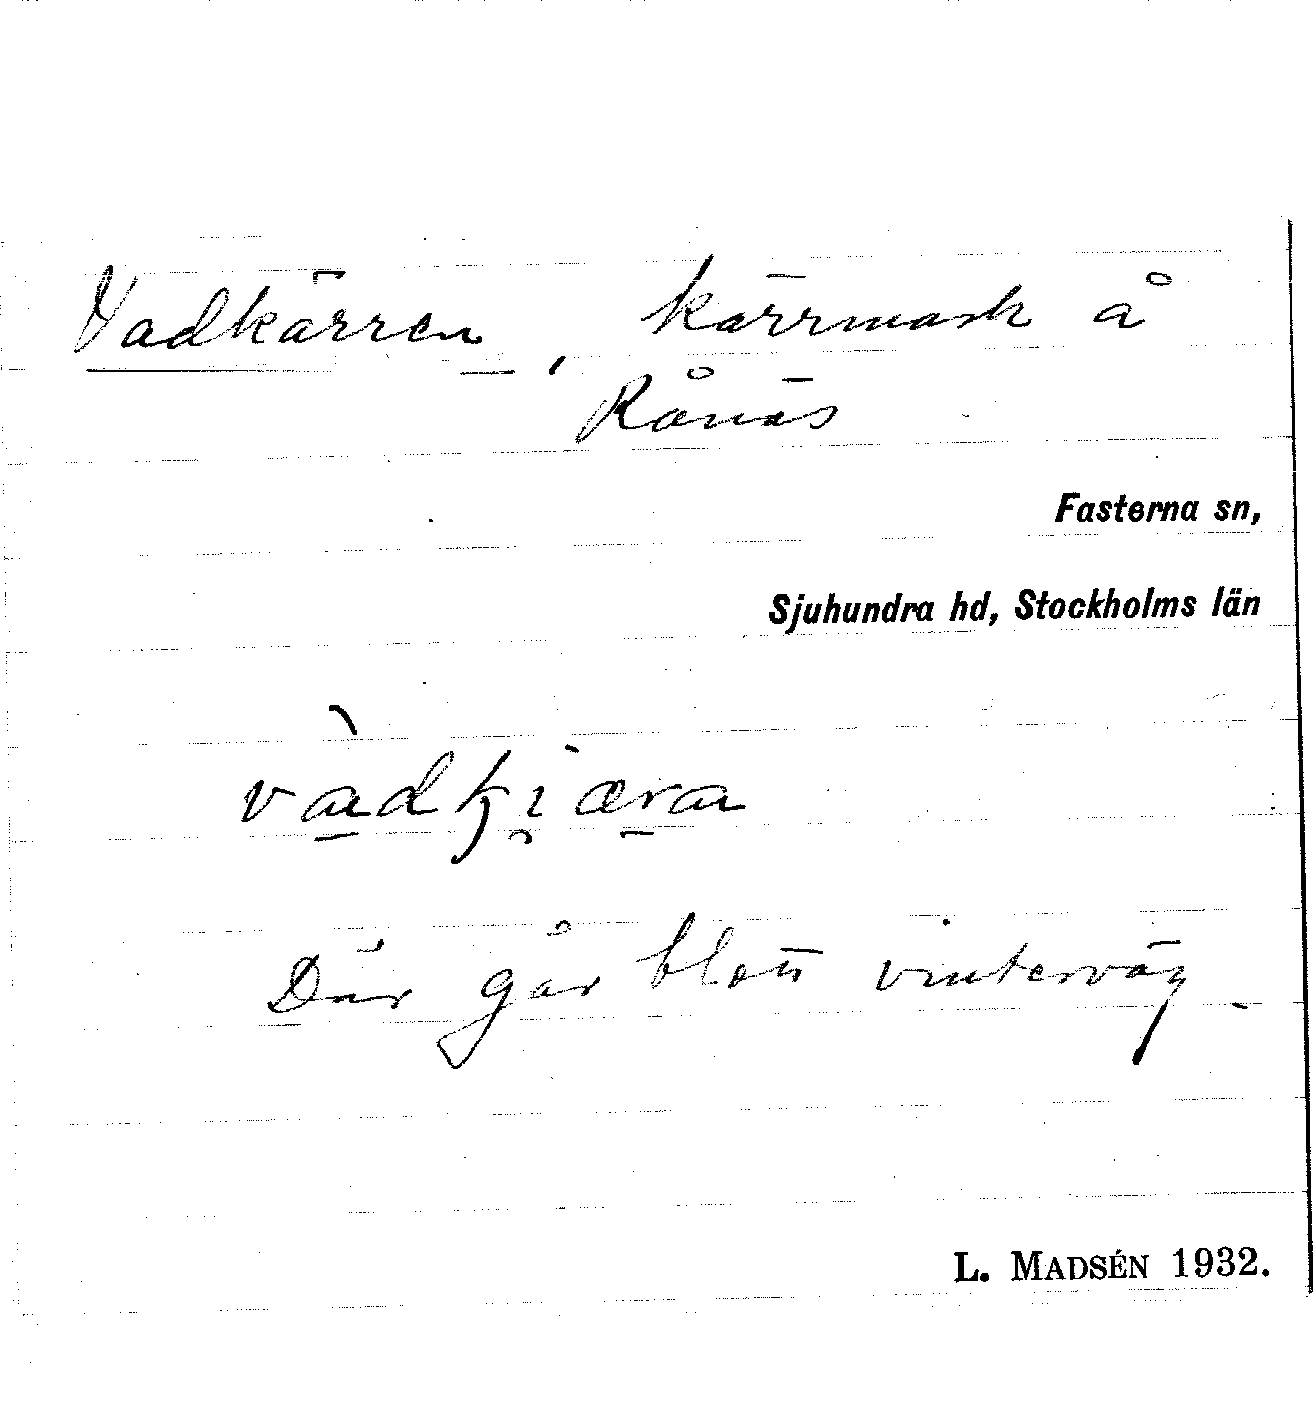 Vadkärren, kärrmark å
Rånäs
Fasterna sn,
Sjuhundra hd, Stockholms län
Där går blott vinterväg.
L. MADSÉN 1932.